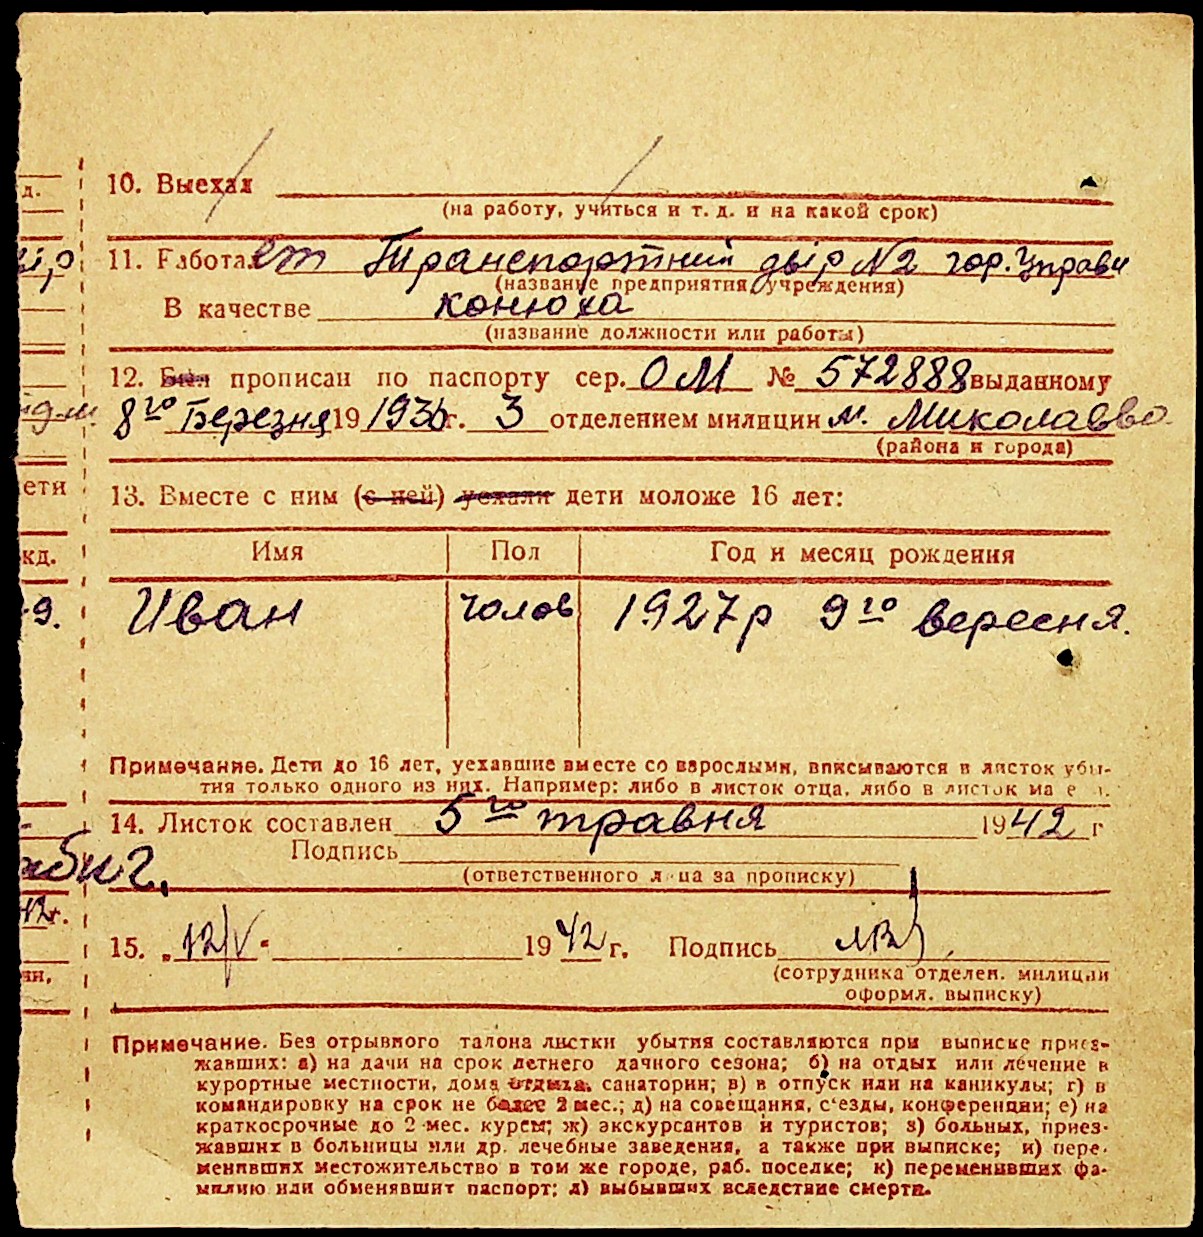 10. Выехал
(на работу, учиться и т. д. и на какой срок)
11. Работает Транспортний двір №2 гор. Управи
(название предприятия, учреждения)
В качестве конюха
(название должности или работы)
12. Был прописан по паспорту сер. ОМ № 572888 выданному
8го Березня 19 1936 г. 3 отделением милиции м. Миколаєво
(района и города)
13. Вместе с ним (с ней) уехали дети моложе 16 лет:
Имя Пол Год и месяц рождения
Иван чолов 1927р 9го вересня.
Примечание. Дети до 16 лет, уехавшие вместе со взрослыми, вписываются в листок убы-
тия только одного из них. Например: либо в листок отца, либо в листок
14. Листок составлен 5го травня 1942 г
Подпись
(ответственного лица за прописку)
15. „12/V" 1942 г. Подпись
(сотрудника отделен. милиции
оформл. выписку)
Примечание. Без отрывного талона листки убытия составляются при выписке приез-
жавших: а) на дачи на срок летнего дачного сезона; б) на отдых или лечение в
курортные местности, дома отдыха, санатории; в) в отпуск или на каникулы; г) в
командировку на срок не более 2 мес.; д) на совещания, с'езды, конференции; е) на
краткосрочные до 2-мес. курсы; ж) экскурсантов и туристов; з) больных, приез-
жавших в больницы или др. лечебные заведения, а также при выписке; и) пере-
менивших местожительство в том же городе, раб. поселке; к) переменивших фа-
милию или обменявшит паспорт; л) выбывших вследствие смерти.